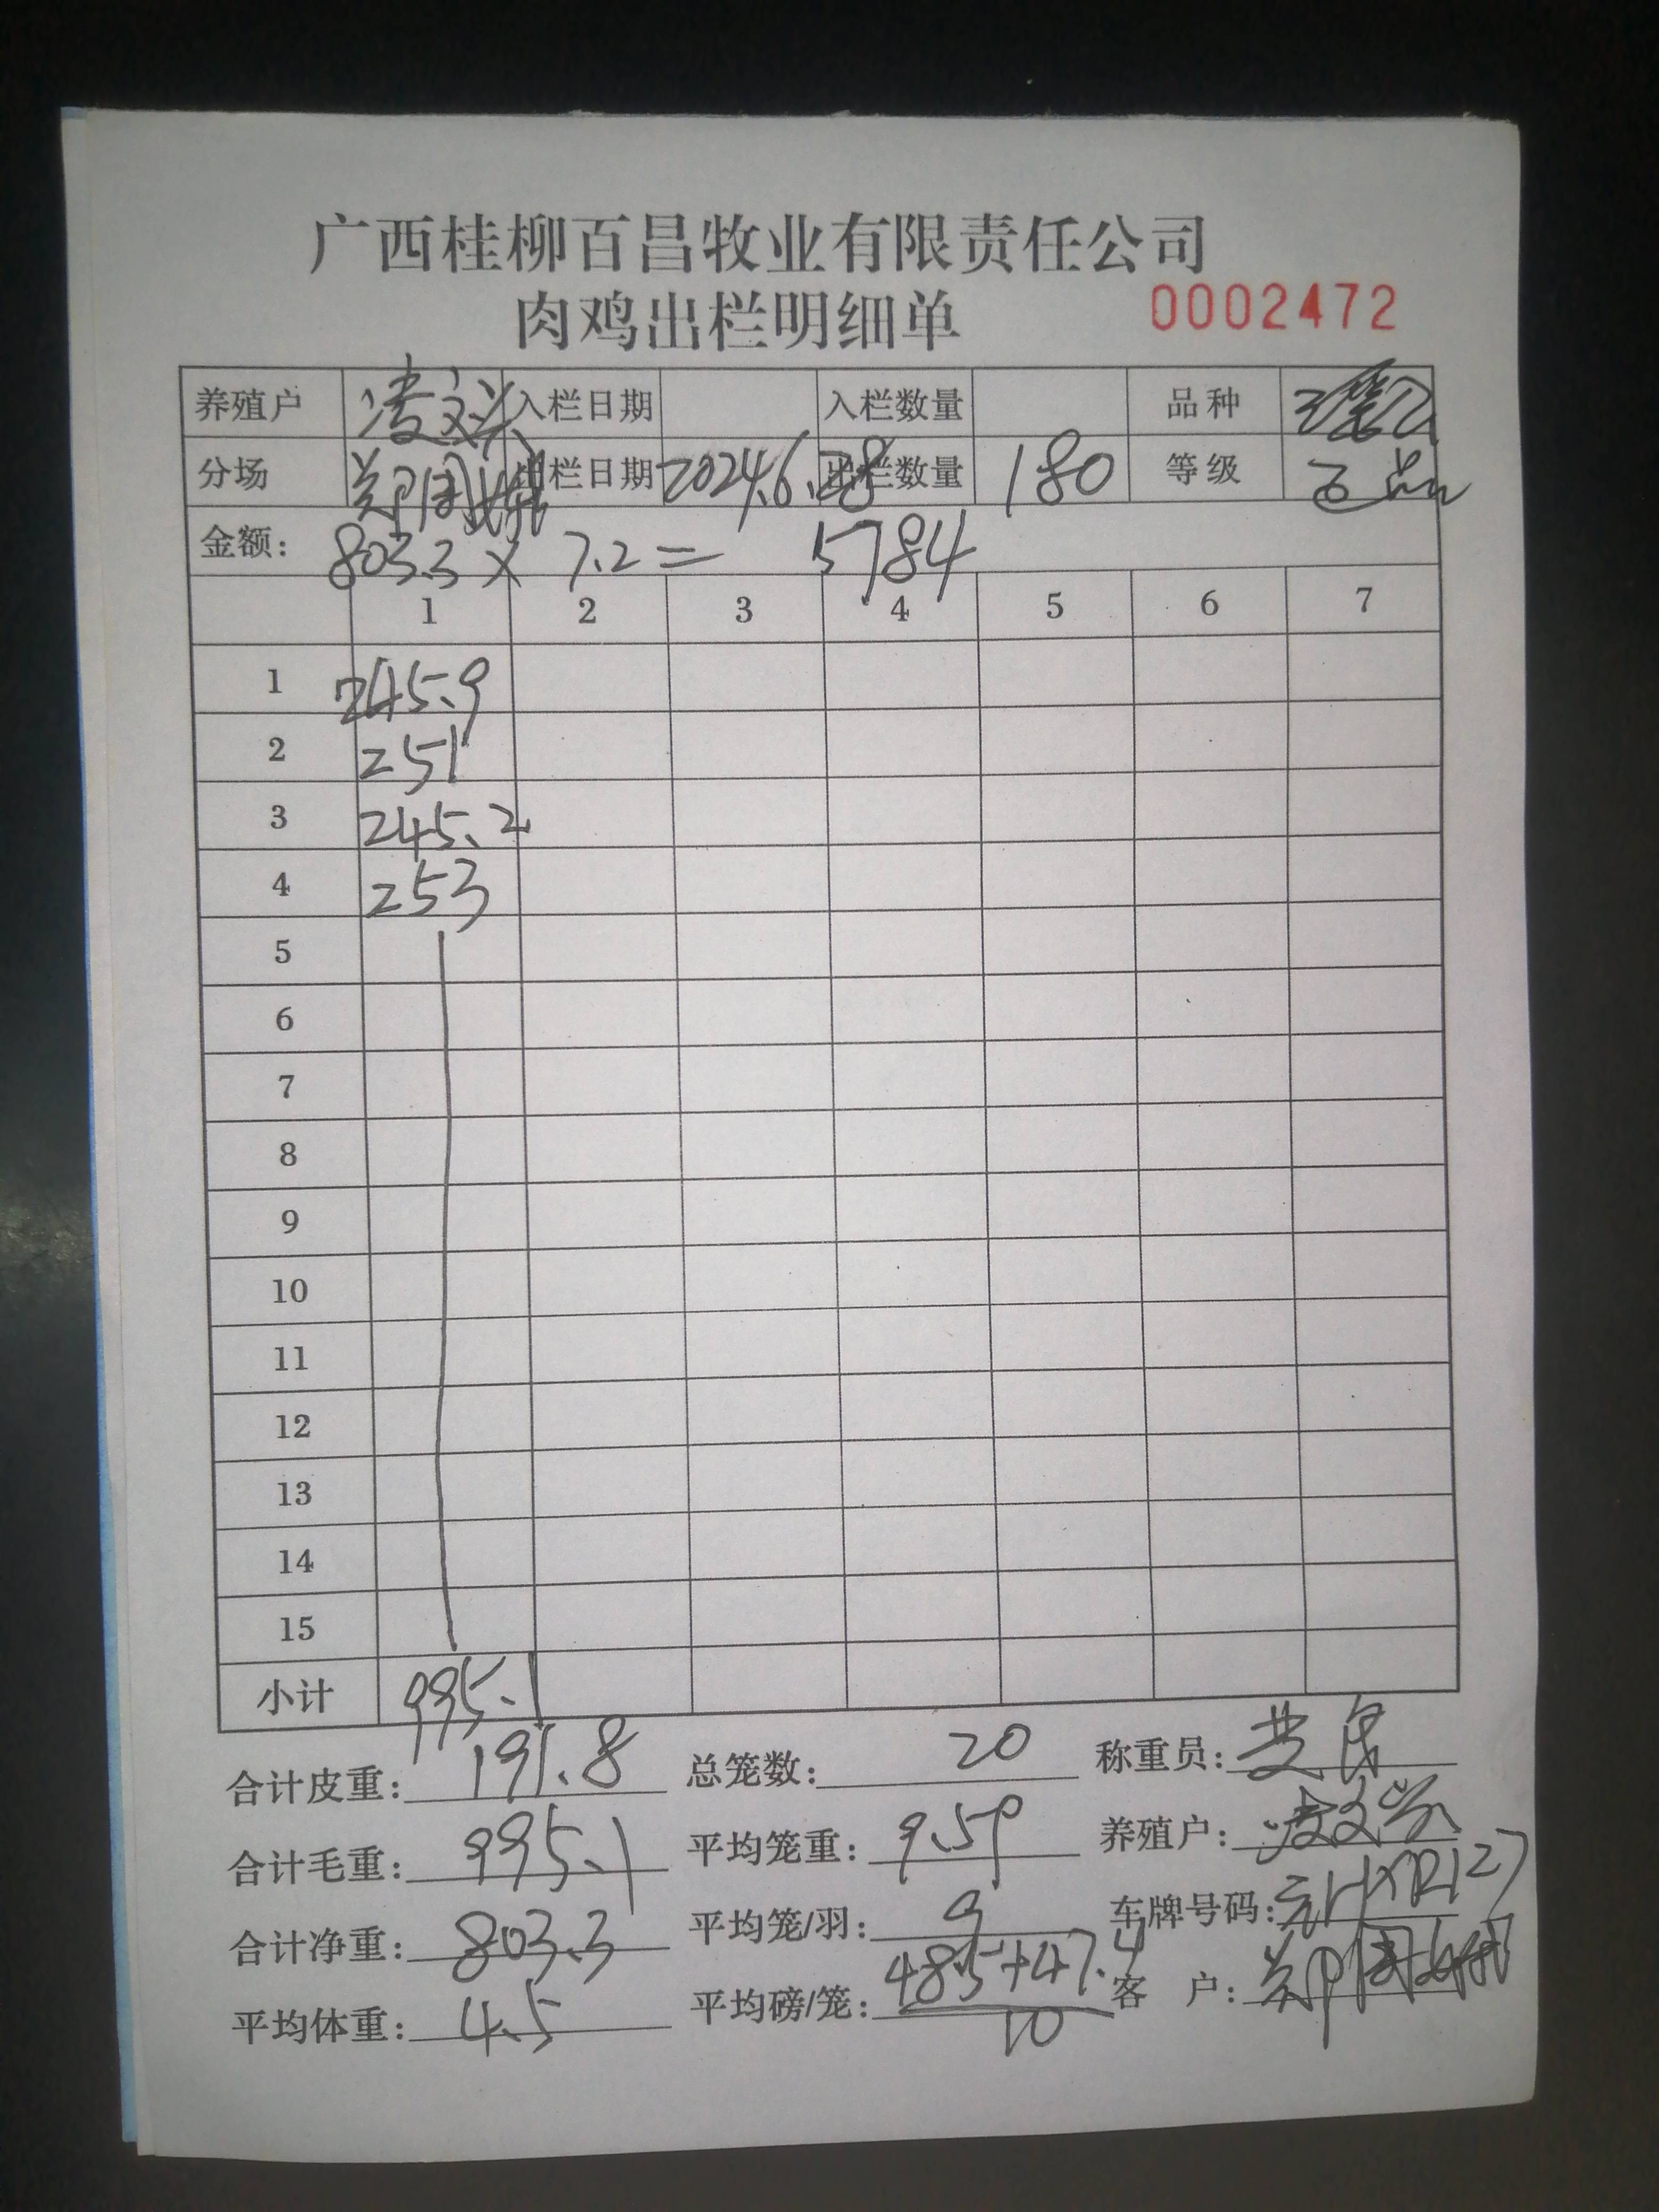 广西桂柳百昌牧业有限责任公司
肉鸡出栏明细单 0002472
养殖户 凌文 入栏日期 入栏数量 品种
分场 郑 出栏日期 2024.6.28 出栏数量 180 等级
金额: 803.3 × 7.2 = 5784
1 2 3 4 5 6 7
1 245.9
2 251
3 245.2
4 253
5
6
7
8
9
10
11
12
13
14
15
小计 995.1
合计皮重: 191.8 总笼数: 20 称重员:
合计毛重: 995.1 平均笼重: 9.59 养殖户: 凌文
合计净重: 803.3 平均笼/羽: 9 车牌号码:
平均体重: 4.5 平均磅/笼: 48.5+47.4 客 户: 郑
10